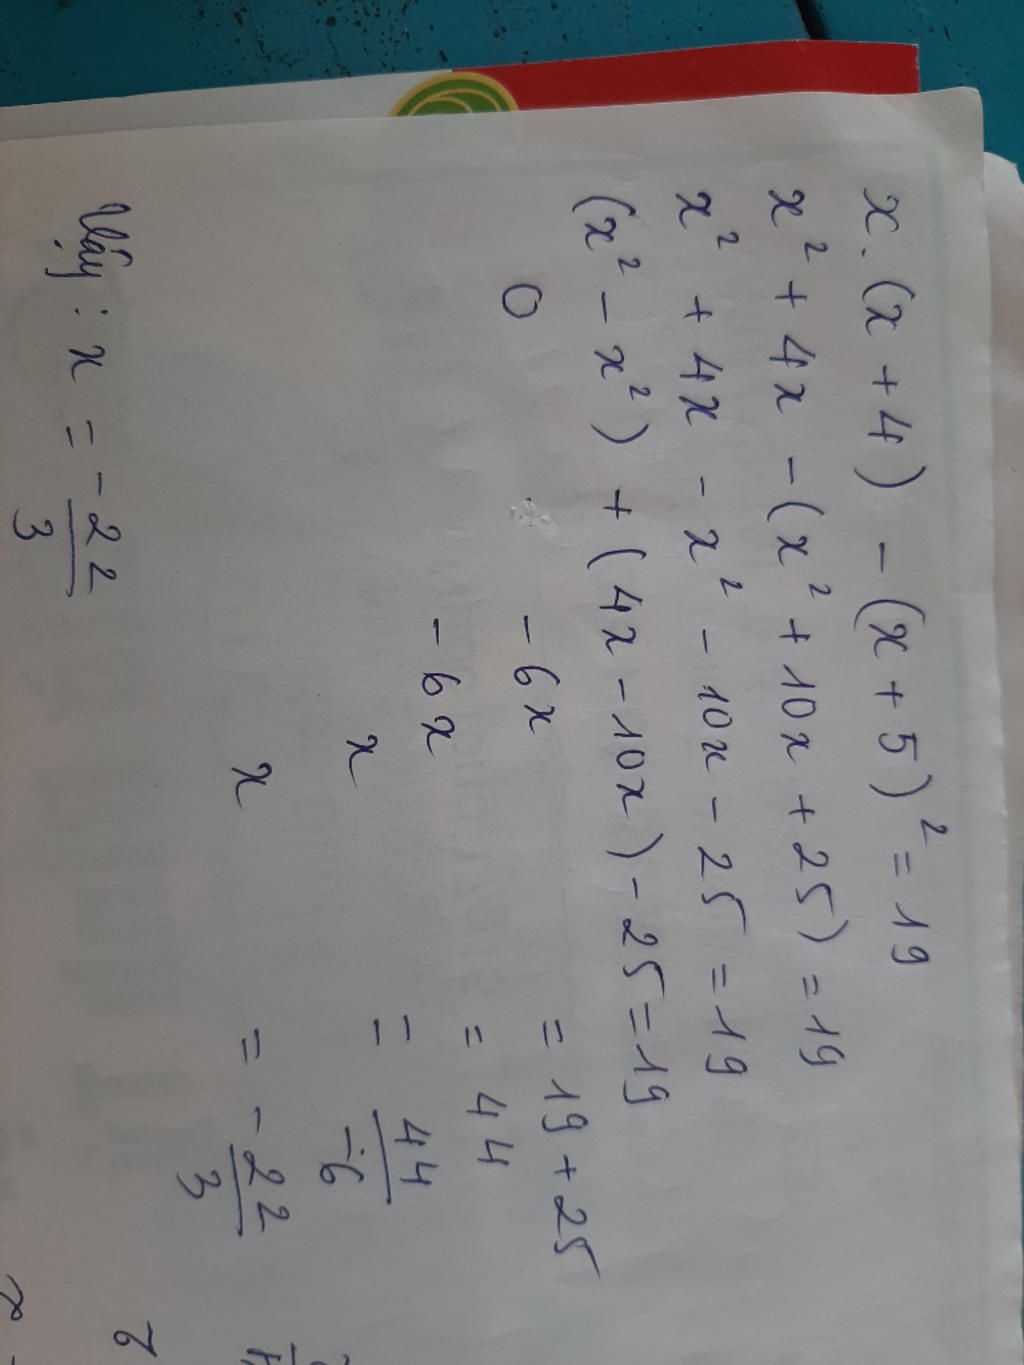 x.(x+4) - (x+5)² = 19
x² + 4x - (x² + 10x + 25) = 19
x² + 4x - x² - 10x - 25 = 19
(x² - x²) + (4x - 10x) - 25 = 19
0 - 6x = 19 + 25
- 6x = 44
x = 44/-6
x = -22/3
Vậy : x = -22/3